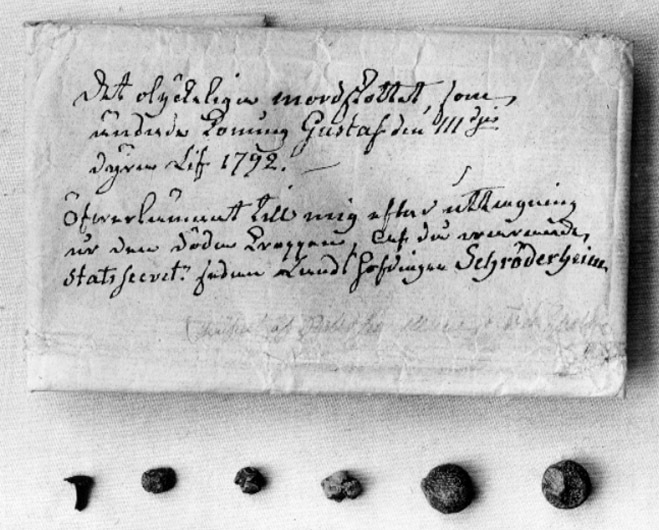 Det olyckelige mordskottet, som
ändade Konung Gustaf den III djes
dyra Lif 1792. —
Öfverlämnat till mig efter uttagning
ur den döda kroppen, af då varande
Statssecret: sedan Landshöfdingen Schröderheim